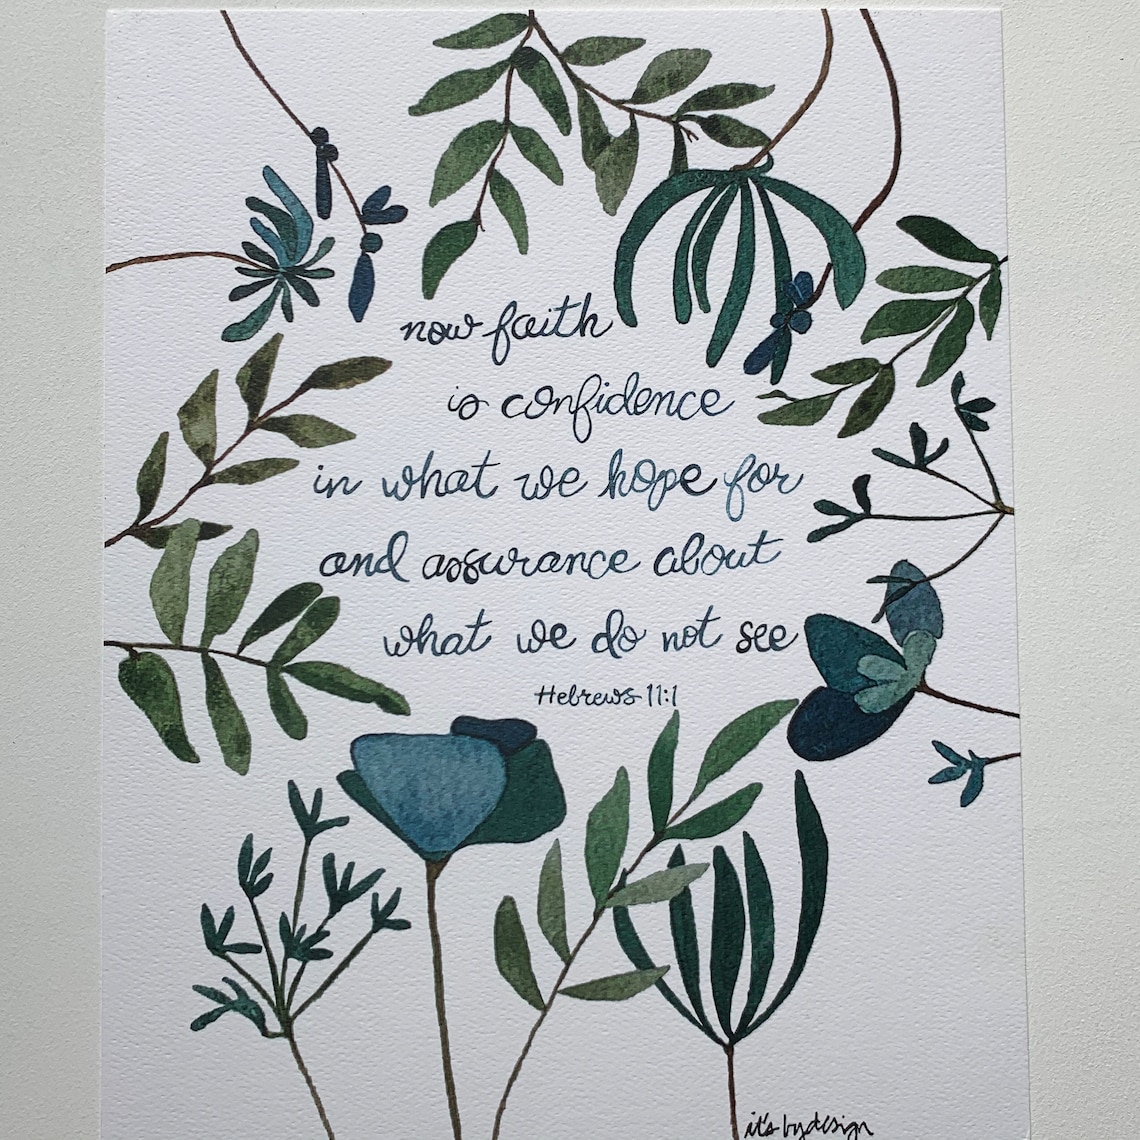 now faith
is confidence
in what we hope for
and assurance about
what we do not see
Hebrews 11:1
it's by design